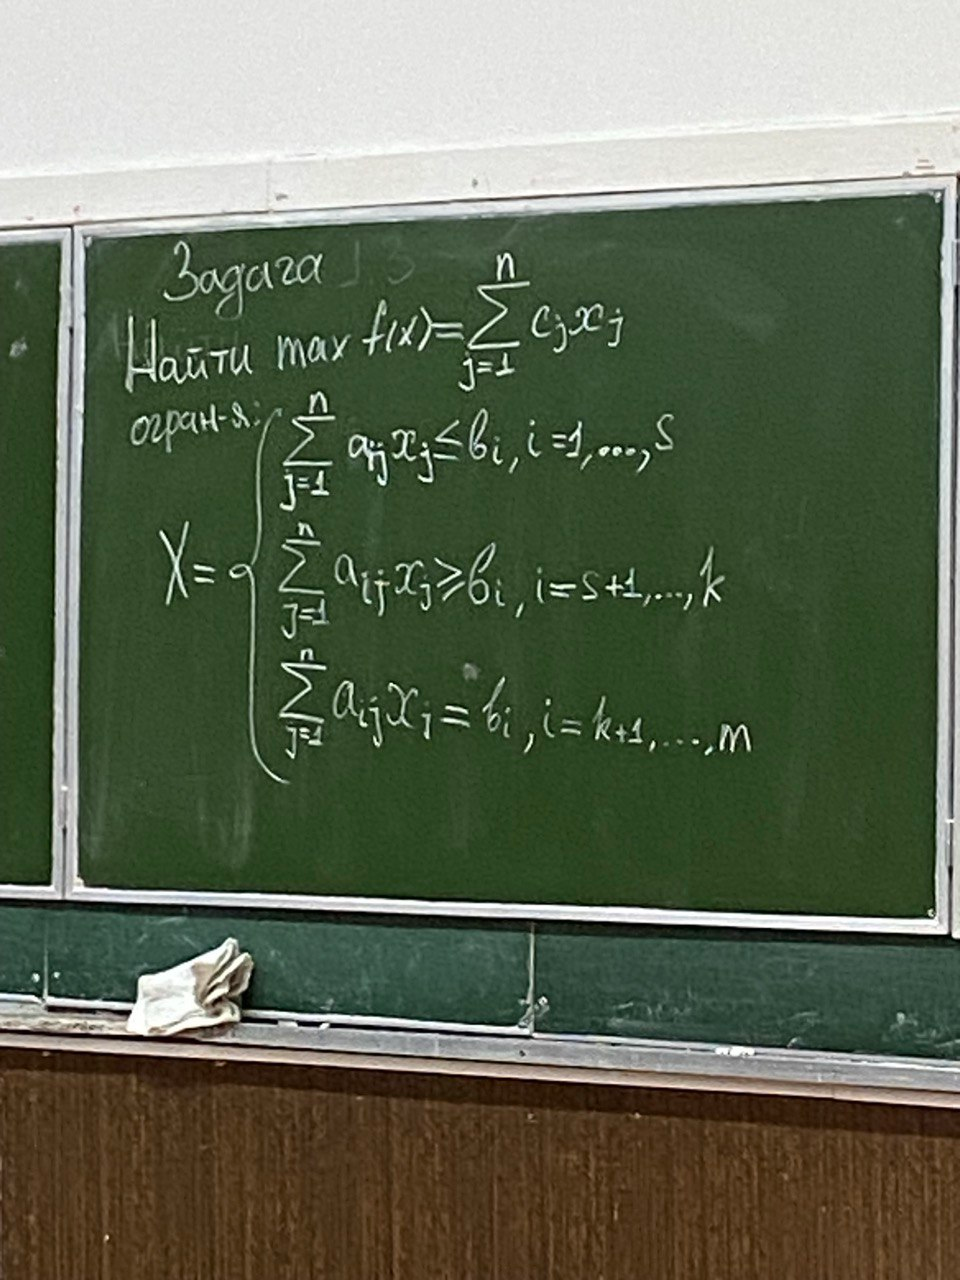 Задача
Найти max f(x)=∑_{j=1}^{n} c_j x_j
огран-я:
X = { ∑_{j=1}^{n} a_{ij} x_j ≤ b_i, i=1,...,s
∑_{j=1}^{n} a_{ij} x_j ≥ b_i, i=s+1,...,k
∑_{j=1}^{n} a_{ij} x_j = b_i, i=k+1,...,m